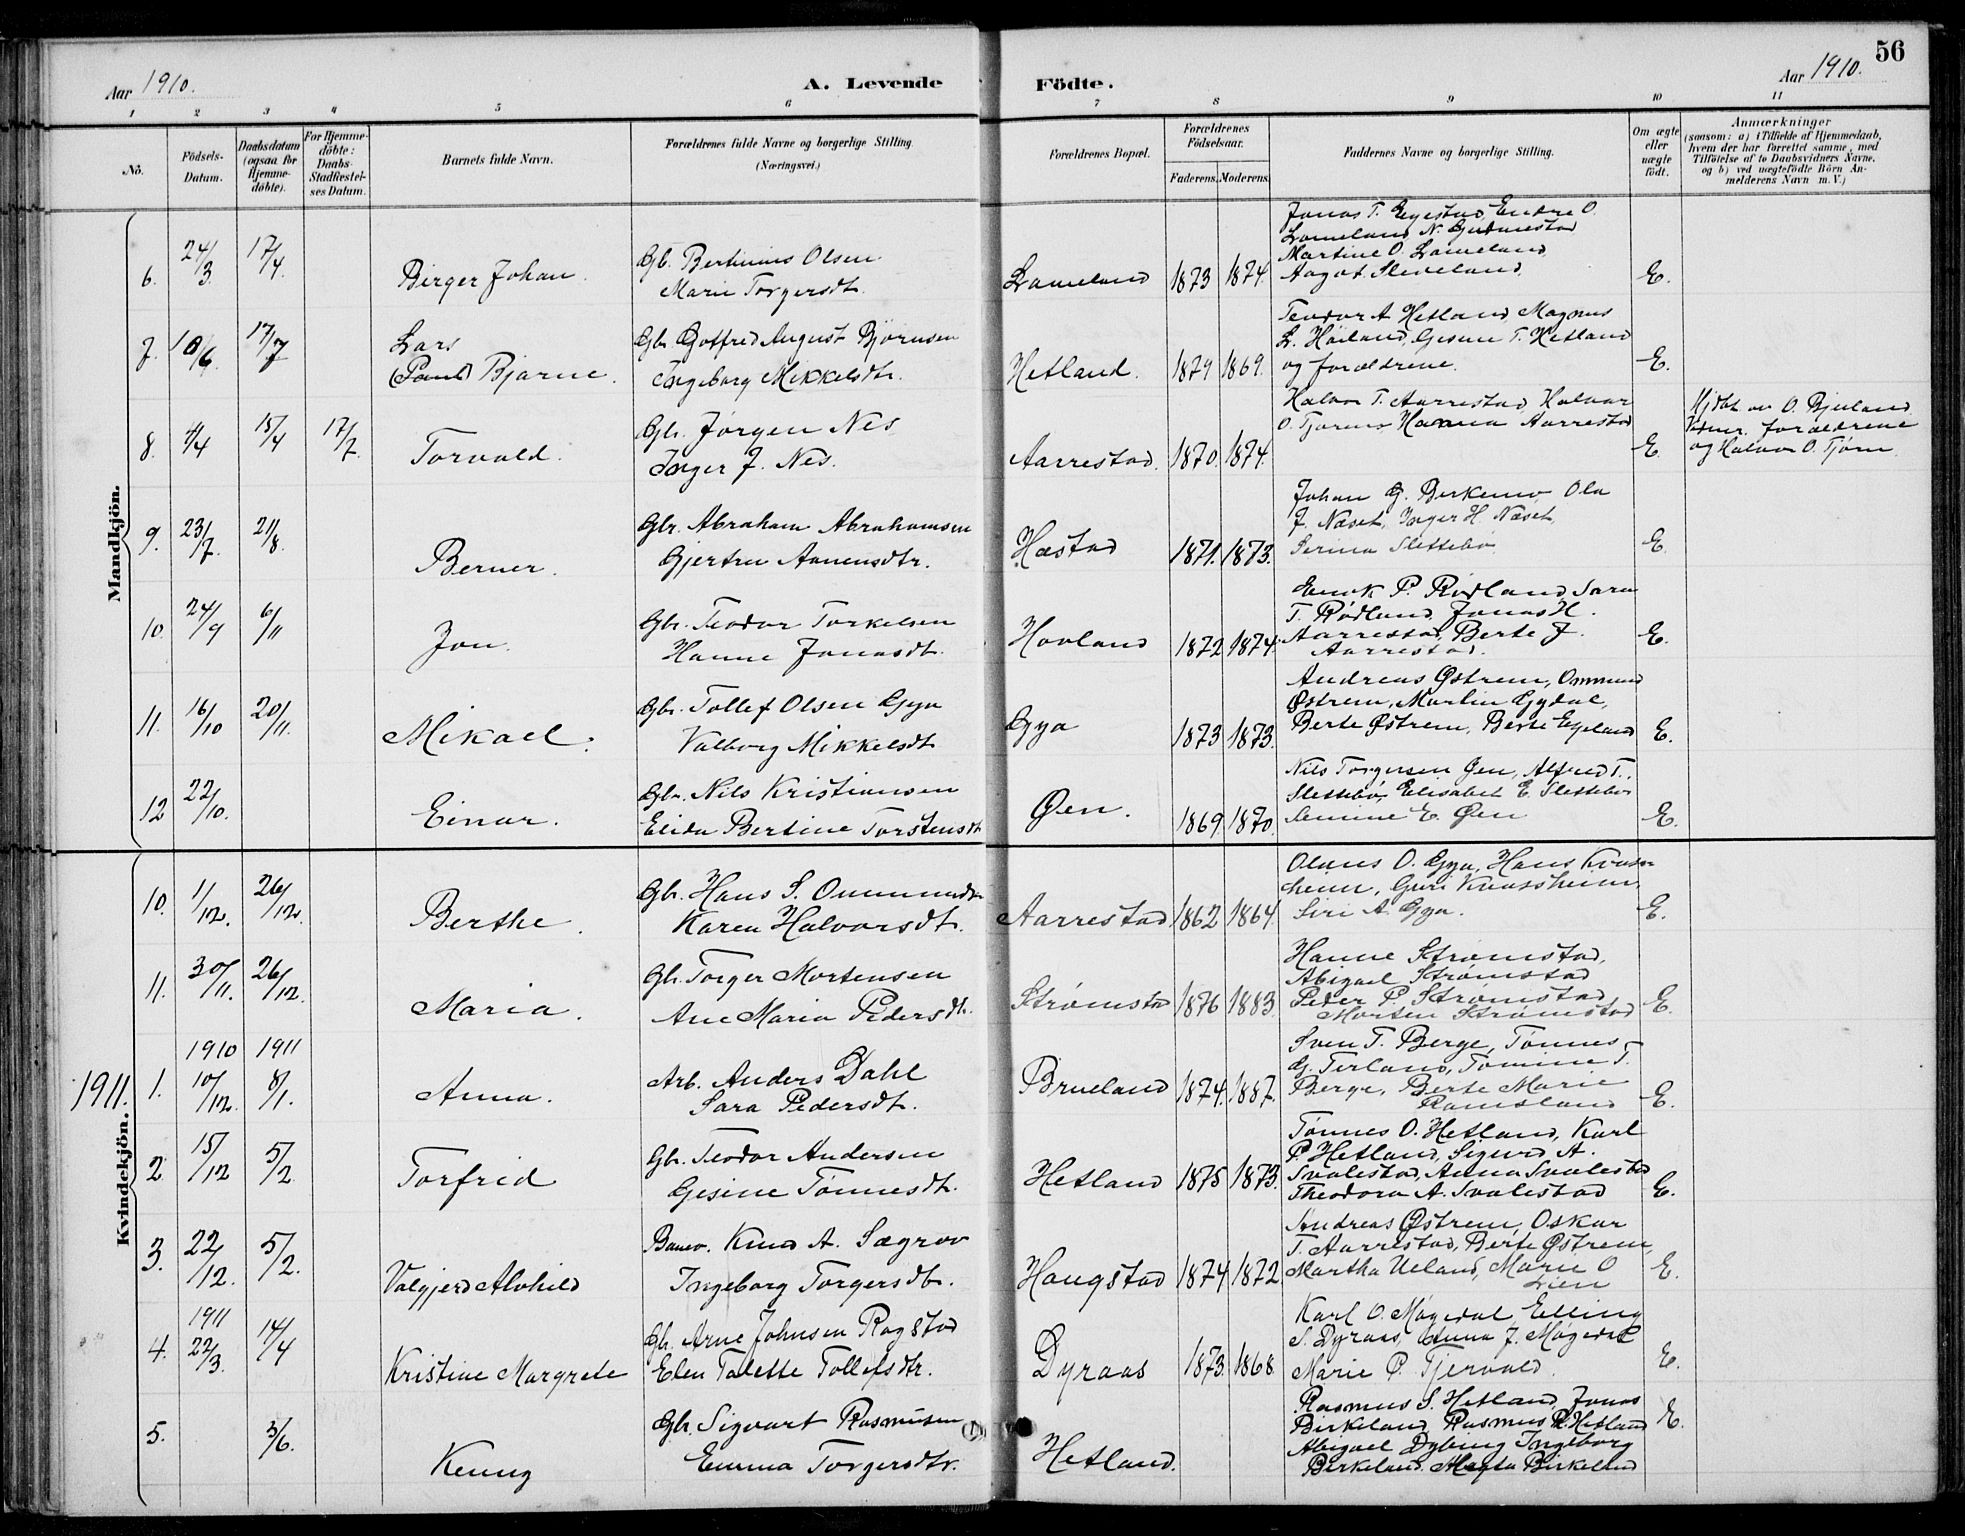 56
Aar 1910.
A. Levende Födte.
Aar 1910.
1 2 3 4 5 6 7 8 9 10 11
No.
Födsels-Datum.
Daabsdatum (ogsaa for Hjemme-döbte).
For Hjemme-döbte: Daabs-Stadfæstel-ses Datum.
Barnets fulde Navn.
Forældrenes fulde Navne og borgerlige Stilling (Næringsvei.)
Forældrenes Bopæl.
Forældrenes Födselsaar.
Faderens. Moderens.
Faddernes Navne og borgerlige Stilling.
Om ægte eller uægte födt.
Anmærkninger
(saasom: a) i Tilfælde af Hjemmedaab,
hvem der har forrettet samme, med
Tilföielse af to Daabsvidners Navne,
og b) ved uægtefödte Börn An-
melderens Navn m. V.)
Mandkjön.
6. 24/3. 17/4. Birger Johan.
Gb. Bertinius Olsen
Marie Torgersdt.
Lameland 1873 1874.
Jonas T. Egestad, Endre O.
Lameland N. Gudmestad
Martine O. Lameland
Aagot Sleveland.
E.
7. 10/6. 17/7 Lars
(Paul) Bjarne.
Gbr. Gotfred August Bjørnsen
Ingeborg Mikkelsdtr.
Hetland. 1879 1869.
Teodor A Hetland, Magnus
L. Høiland, Gesine T. Hetland
og forældrene.
E.
8. 4/4 15/4 17/7. Torvald.
Gbr. Jørgen Nes
Inger J. Nes.
Aarrestad. 1870. 1874.
Halvor T. Aarrestad, Halvar
O. Tjørn, Hanna Aarrestad
E.
Hjdbt. av O. Bjuland
Vidner. forældrene
og Halvor O. Tjørn
9. 23/7. 21/8. Berner.
Gbr. Abraham Abrahamsen
Gjertru Aanensdtr.
Hæstad 1871. 1873.
Johan G. Berkemo Ola
J. Næset, Inger H. Næset
Serina Slettebø
E.
10. 24/9 6/11 Jon.
Gbr. Teodor Torkelsen
Hanne Jonasdt.
Hovland 1872 1874.
Enok P. Rødland, Sara
T. Rødland, Jonas H.
Aarrestad, Berte J.
Aarrestad.
E.
11. 16/10 20/11. Mikael.
Gbr. Tollef Olsen Gya
Valborg Mikkelsdt
Gya 1873 1873.
Andreas Østrem, Ommund
Østrem, Martin Gydal,
Berte Østrem, Berte Egeland
E.
12 22/10. Einar.
Gbr. Nils Kristiansen
Elida Bertine Torstensdt
Øen. 1869. 1870.
Nils Torgersen Øen, Alfred T.
Slettebø, Elisabet E. Slettebø
Semine E. Øen
E.
Kvindekjön.
10. 1/12. 26/12. Berthe.
Gbr. Hans S. Ommundsen
Karen Halvorsdt.
Aarrestad 1862 1864.
Olaus O. Gya, Hans Knass
heim, Guri Knassheim
Siri A. Gya.
E.
11. 30/11. 26/12. Maria.
Gb. Torger Mortensen
Ane Maria Pedersdt.
Strømstad 1876 1883.
Hanne Strømstad,
Abigael Strømstad
Peder P. Strømstad
Morten Strømstad
E.
1911.
1. 1910 10/12. 1911 8/1. Anna.
Arb. Anders Dahl
Sara Pedersdt.
Brueland 1874. 1887.
Sven T. Berge, Tønnes
G. Terland, Tomine T.
Berge, Berte Marie
Ramsland
E.
2 15/12 5/2 Torfrid
Gbr. Teodor Andersen
Gesine Tønnesdt.
Hetland 1875 1873.
Tønnes O. Hetland, Karl
P. Hetland, Sigurd A.
Svalestad, Anna Svalestad
Theodora A. Svalestad
E.
3. 22/12. 5/2. Valgjerd Alvhild
Banev. Knud A. Sægrov
Ingeborg Torgersdt.
Haugstad 1874 1872
Andreas Østrem, Oskar
T. Aarrestad, Berte Østrem,
Martha Ueland, Marie O
Lien
E.
4. 1911 22/3. 14/4 Kristine Margrete
Gb. Arne Johnsen Ragstad
Elen Talette Tollefsdtr.
Dyraas 1873. 1868
Karl O. Møgedal, Elling
S. Dyraas, Anna J. Møgedal
Marie P. Tjervold.
E.
5. 3/6. Kenny
Gbr. Sigvart Rasmusen
Emma Torgersdtr.
Hetland.
Rasmus S. Hetland, Jonas
Birkeland, Rasmus R. Hetland
Abigael Dybing Ingeborg
Birkeland. Magta Birkeland
E.